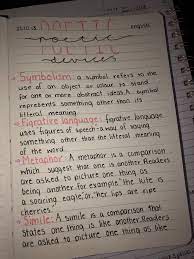 21.10.18 POETIC english
poetic
POETIC
devices
• Symbolism: a symbol refers to the
use of an object or colour to stand
for one or more abstract ideas. A symbol
represents something other than its
literal meaning.
• Figrative language: figrative language
uses figures of speech - a way of saying
something other than the literal meaning
of the word.
• Metaphor: A metaphor is a comparison
which suggest that one is another. Readers
are asked to picture one thing as
being another. for example "the kite is
a soaring eagle, or, "her lips are ripe
cherries."
• Simile: A simile is a comparison that
states one thing is like another. Readers
are asked to picture one thing as like